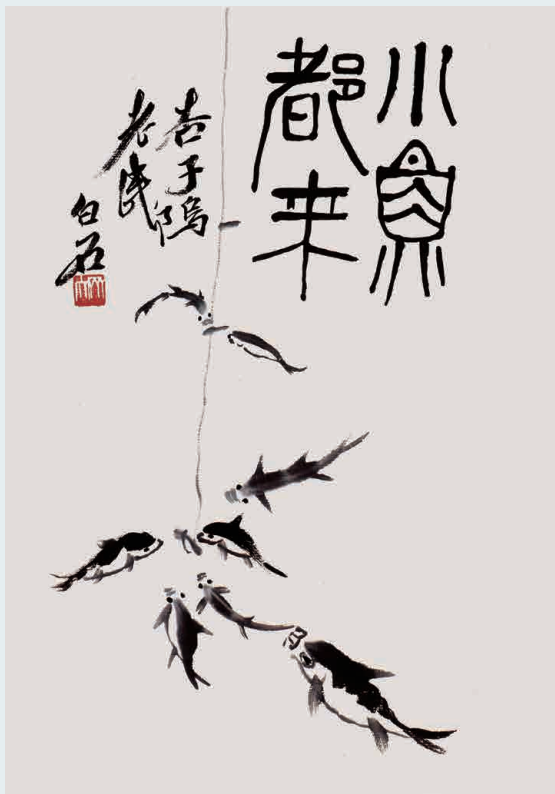 小魚
都来
杏子隖
老民
白石